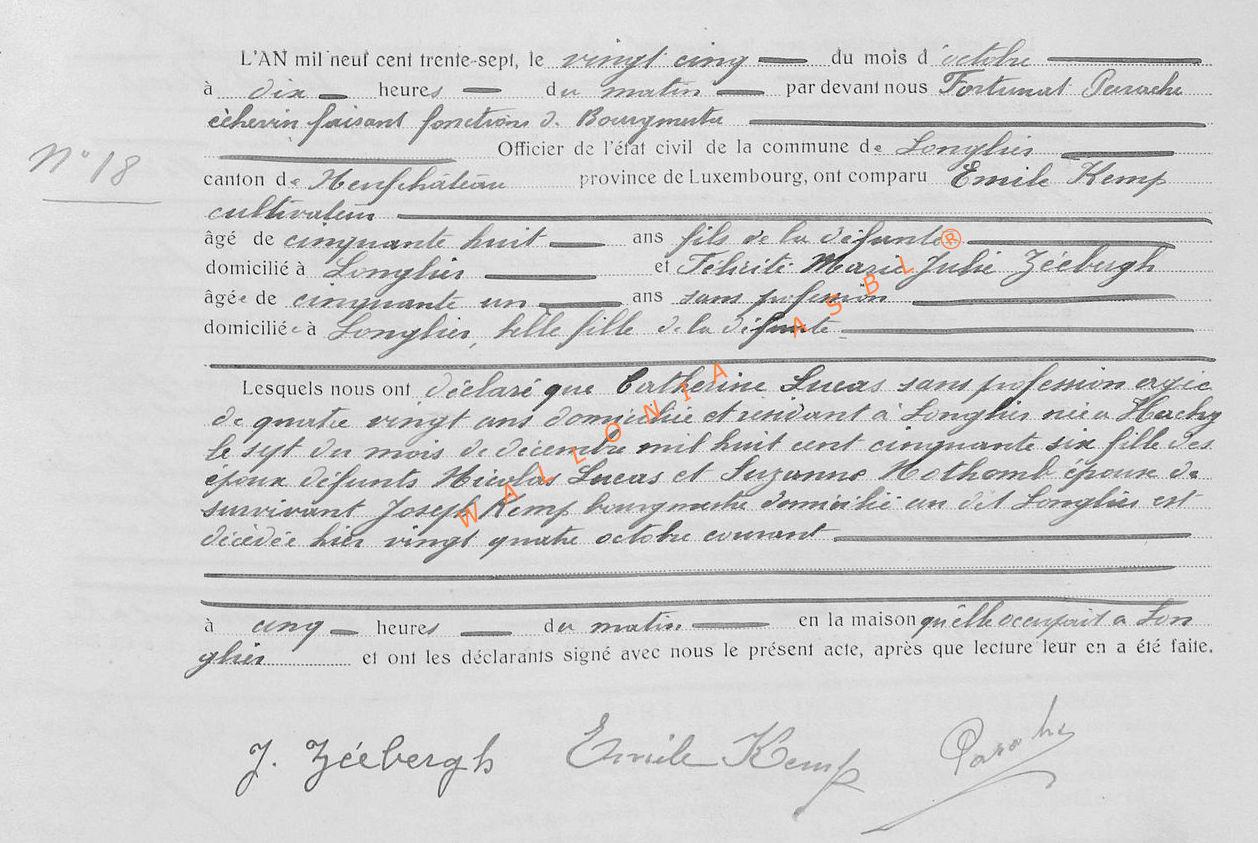 L'AN mil neuf cent trente-sept, le vingt cinq du mois d'octobre
à dix heures du matin par devant nous Fortunat Parache
échevin faisant fonctions de Bourgmestre
Officier de l'état civil de la commune de Longlier
N° 18
canton de Neufchâteau province de Luxembourg, ont comparu Emile Kemp
cultivateur
âgé de cinquante huit ans fils de la défunte
domicilié à Longlier et Félicité Marie Julie Zéebergh
âgée de cinquante un ans sans profession
domiciliée à Longlier, belle fille de la défunte
Lesquels nous ont déclaré que Catherine Lucas sans profession agée
de quatre vingt ans domiciliée et résidant à Longlier née à Hachy
le sept du mois de décembre mil huit cent cinquante six fille des
époux défunts Nicolas Lucas et Suzanne Hothomb épouse du
survivant Joseph Kemp bourgmestre domicilié au dit Longlier est
décédée hier vingt quatre octobre courant
à cinq heures du matin en la maison qu'elle occupait à Lon
glier et ont les déclarants signé avec nous le présent acte, après que lecture leur en a été faite.
J. Zéebergh Emile Kemp Parache
WALLONIA ASBL®